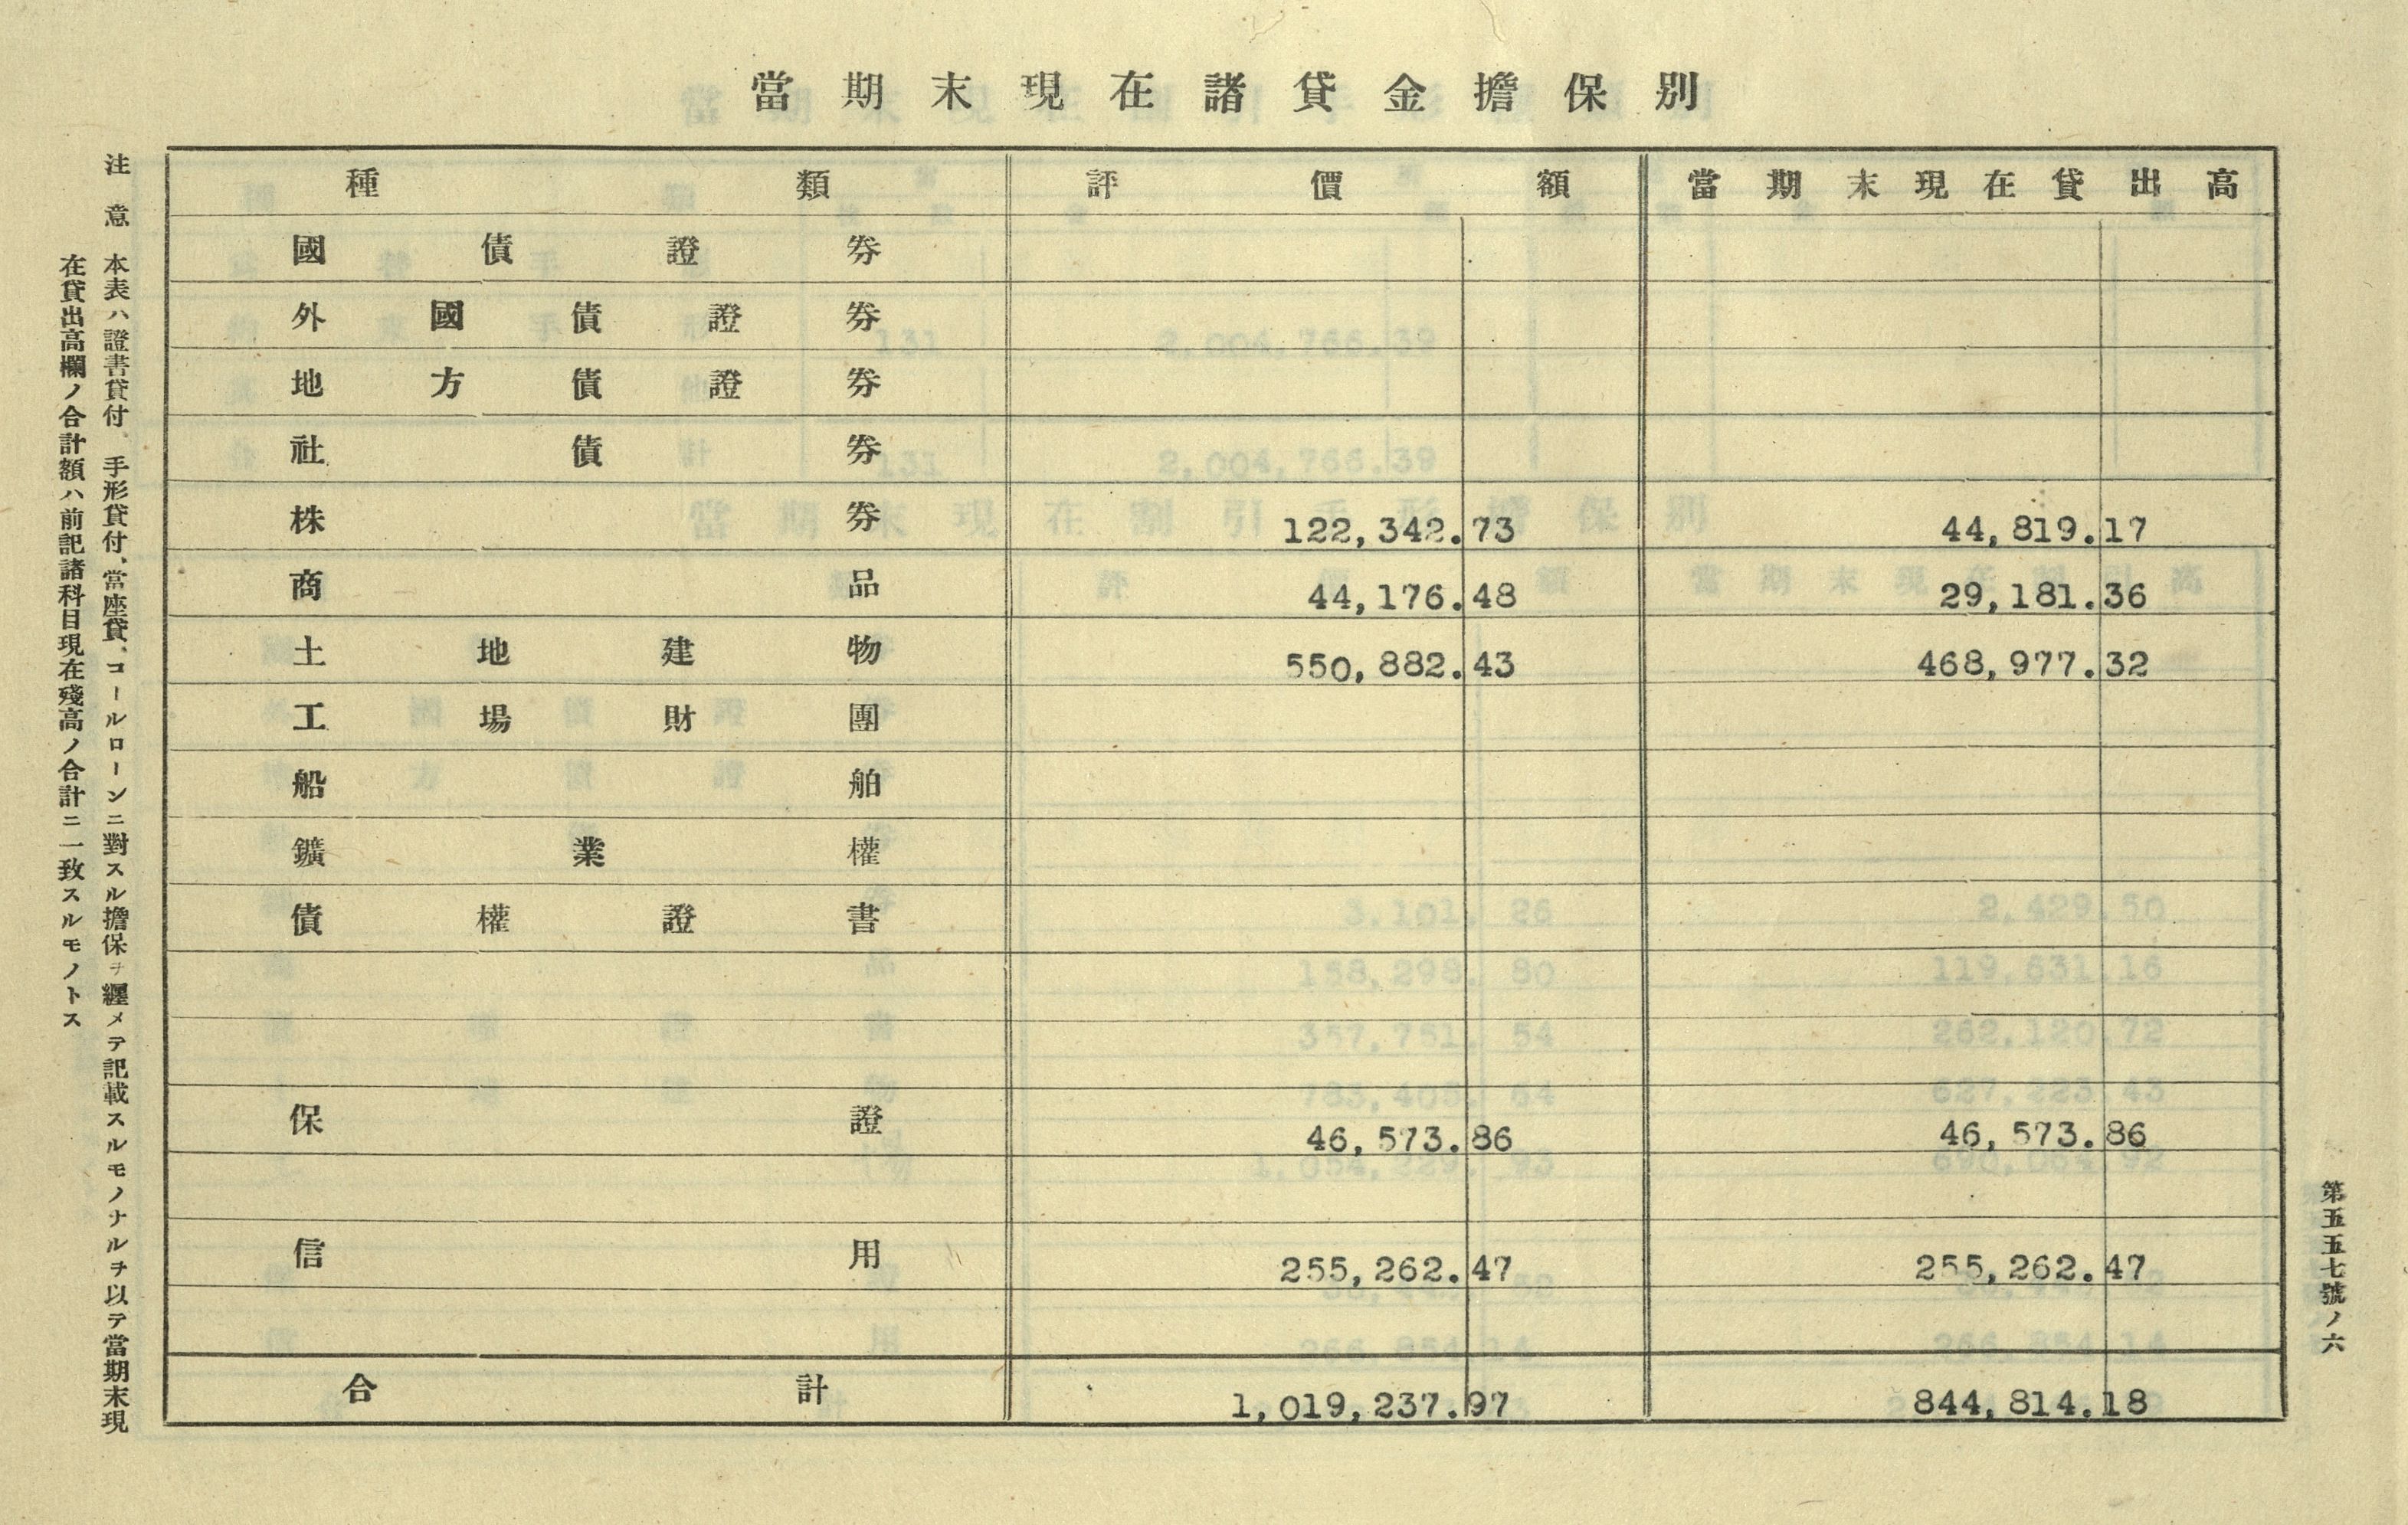 當期末現在諸貸金擔保別
種類 評價額 當期末現在貸出高
國債證券
外國債證券
地方債證券
社債券
株券 122,342.73 44,819.17
商品 44,176.48 29,181.36
土地建物 550,882.43 468,977.32
工場財團
船舶
鑛業權
債權證書
保證 46,573.86 46,573.86
信用 255,262.47 255,262.47
合計 1,019,237.97 844,814.18
第五五七號ノ六
注意 本表ハ證書貸付、手形貸付、當座貸、コールローンニ對スル擔保ヲ纒メテ記載スルモノナルヲ以テ當期末現
在貸出高欄ノ合計額ハ前記諸科目現在殘高ノ合計ニ一致スルモノトス